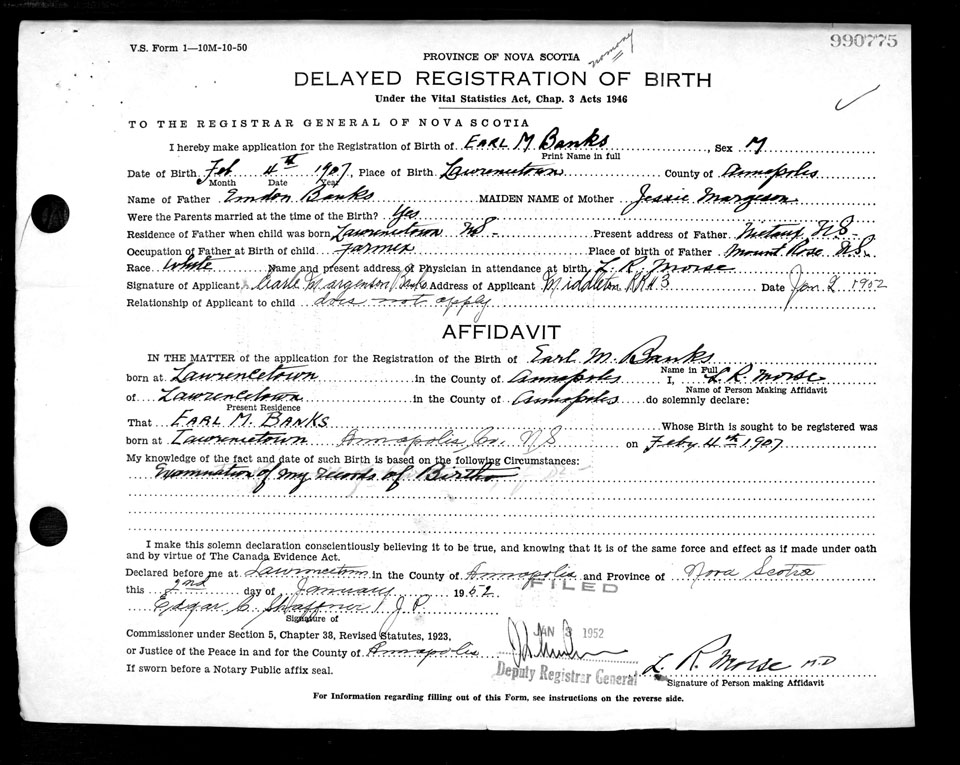 V.S. Form 1—10M-10-50
990775
PROVINCE OF NOVA SCOTIA
DELAYED REGISTRATION OF BIRTH
Under the Vital Statistics Act, Chap. 3 Acts 1946
TO THE REGISTRAR GENERAL OF NOVA SCOTIA
I hereby make application for the Registration of Birth of EARL M Banks, Sex M
Print Name in full
Date of Birth Feb 4th 1907, Place of Birth Lawrencetown County of Annapolis
Month Date Year
Name of Father Emdon Banks MAIDEN NAME of Mother Jessie Margeson
Were the Parents married at the time of the Birth? Yes
Residence of Father when child was born Lawrencetown NS- Present address of Father Nictaux N.S-
Occupation of Father at Birth of child Farmer Place of birth of Father Mount Rose N.S.
Race White Name and present address of Physician in attendance at birth L. R. Morse
Signature of Applicant Earle Banks Address of Applicant Middleton RR #3 Date Jan. 2 1952
Relationship of Applicant to child does not apply
AFFIDAVIT
IN THE MATTER of the application for the Registration of the Birth of Earl M. Banks
Name in Full
born at Lawrencetown in the County of Annapolis I, L. R. Morse
Name of Person Making Affidavit
of Lawrencetown in the County of Annapolis do solemnly declare:
Present Residence
That EARL M. BANKS Whose Birth is sought to be registered was
born at Lawrencetown Annapolis Co. NS on Feby 4th 1907
My knowledge of the fact and date of such Birth is based on the following Circumstances:
Examination of my records of Births
I make this solemn declaration conscientiously believing it to be true, and knowing that it is of the same force and effect as if made under oath
and by virtue of The Canada Evidence Act.
Declared before me at Lawrencetown in the County of Annapolis and Province of Nova Scotia
this 2nd day of January 1952
FILED
Edgar C. Shaffner J.P.
Signature of
JAN 3 1952
Commissioner under Section 5, Chapter 38, Revised Statutes, 1923,
or Justice of the Peace in and for the County of Annapolis
Deputy Registrar General
L. R. Morse M.D
Signature of Person making Affidavit
If sworn before a Notary Public affix seal.
For Information regarding filling out of this Form, see instructions on the reverse side.